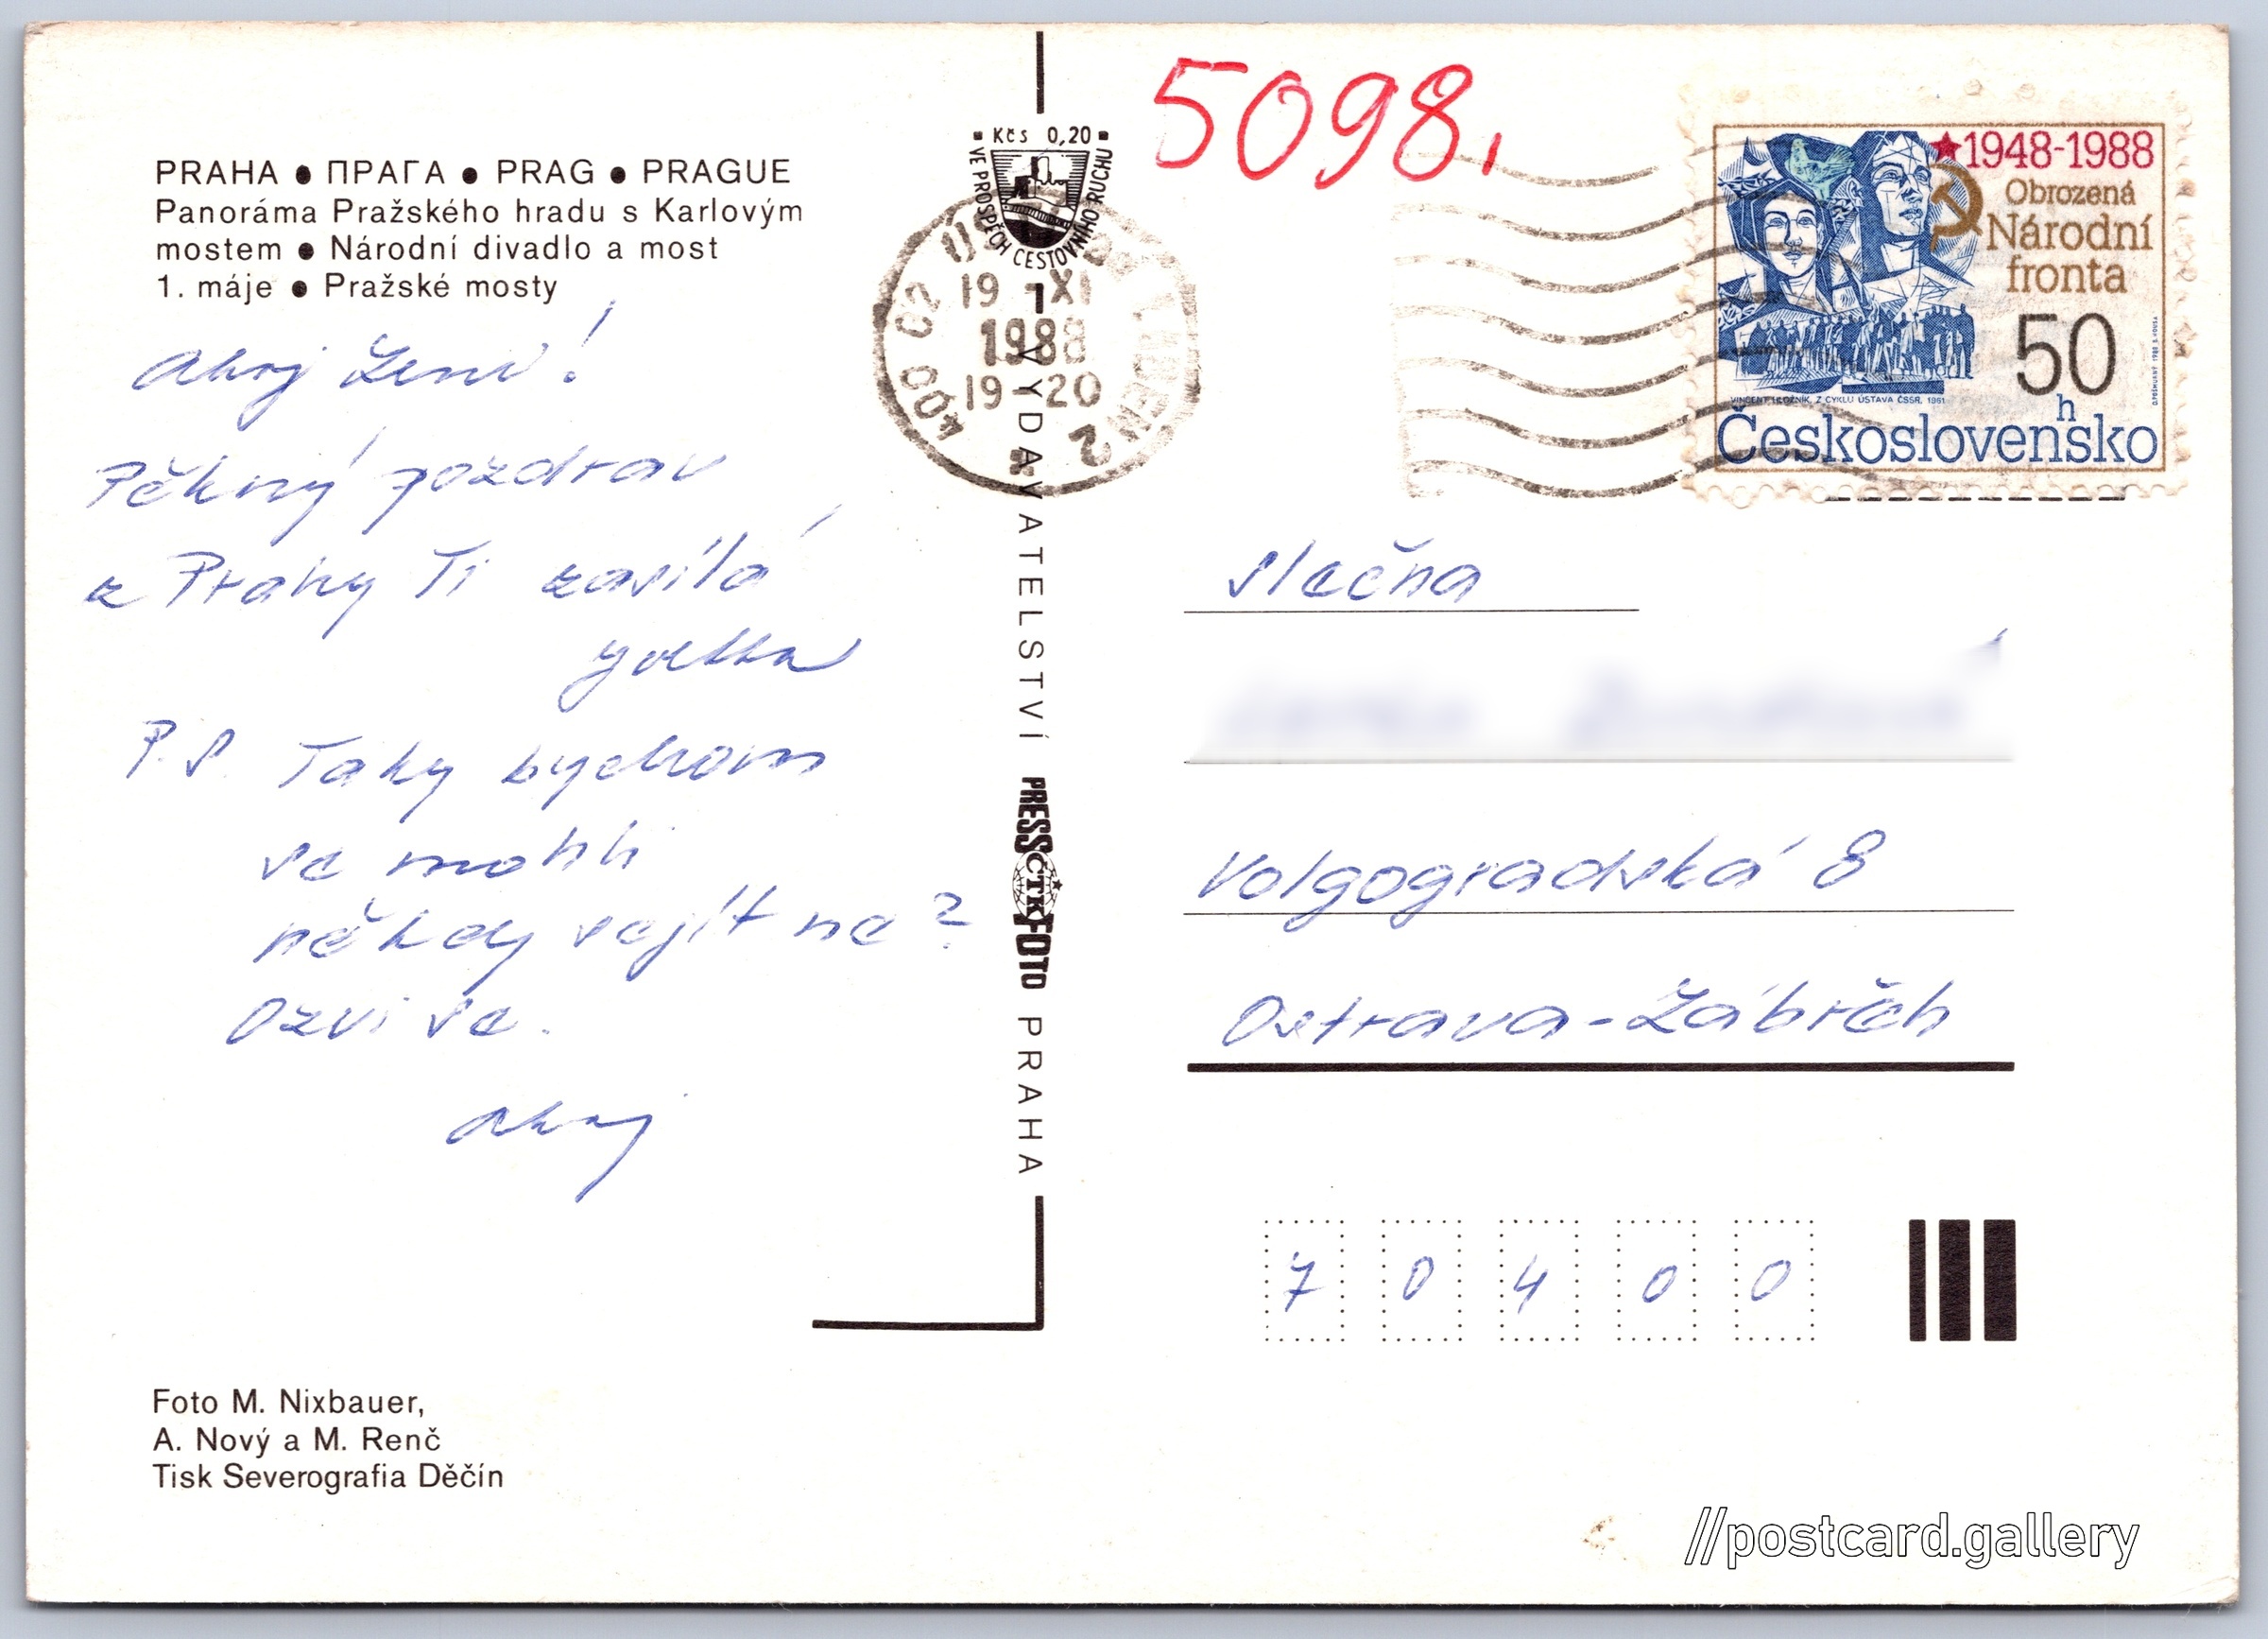 PRAHA ● ПРАГА ● PRAG ● PRAGUE
Panoráma Pražského hradu s Karlovým
mostem ● Národní divadlo a most
1. máje ● Pražské mosty
Ahoj !
Pěkný pozdrav
z Prahy Ti zasílá
P.S. Taky bychom
se mohli
někdy sejít ne?
Ozvi se.
Ahoj
Foto M. Nixbauer,
A. Nový a M. Renč
Tisk Severografia Děčín
Kčs 0,20
VE PROSPĚCH CESTOVNÍHO RUCHU
400 02
19 XI
1988
19-20
2
VYDAVATELSTVÍ PRESSFOTO PRAHA
ČTK
5098,
1948-1988
Obrozená
Národní
fronta
50
h
VINCENT HLOŽNÍK, Z CYKLU ÚSTAVA ČSSR, 1961
Československo
slečna
Volgogradská 8
Ostrava-Zábřeh
7 0 4 0 0
//postcard.gallery